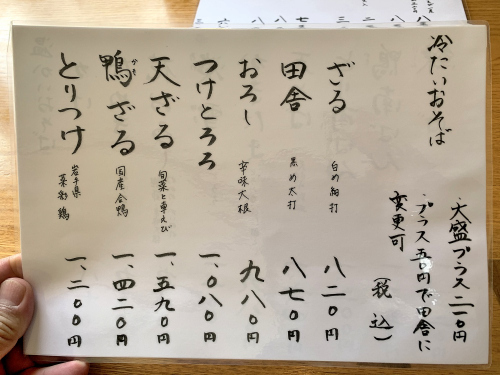 冷たいおそば
・大盛プラス二一〇円
・プラス五〇円で田舎に
変更可
(税込)
ざる 白め細打 八二〇円
田舎 黒め太打 八七〇円
おろし 辛味大根 九八〇円
つけとろろ 一、〇八〇円
天ざる 旬菜と車えび 一、五九〇円
鴨ざる かも 国産合鴨 一、四二〇円
とりつけ 岩手県 菜彩鶏 一、二〇〇円